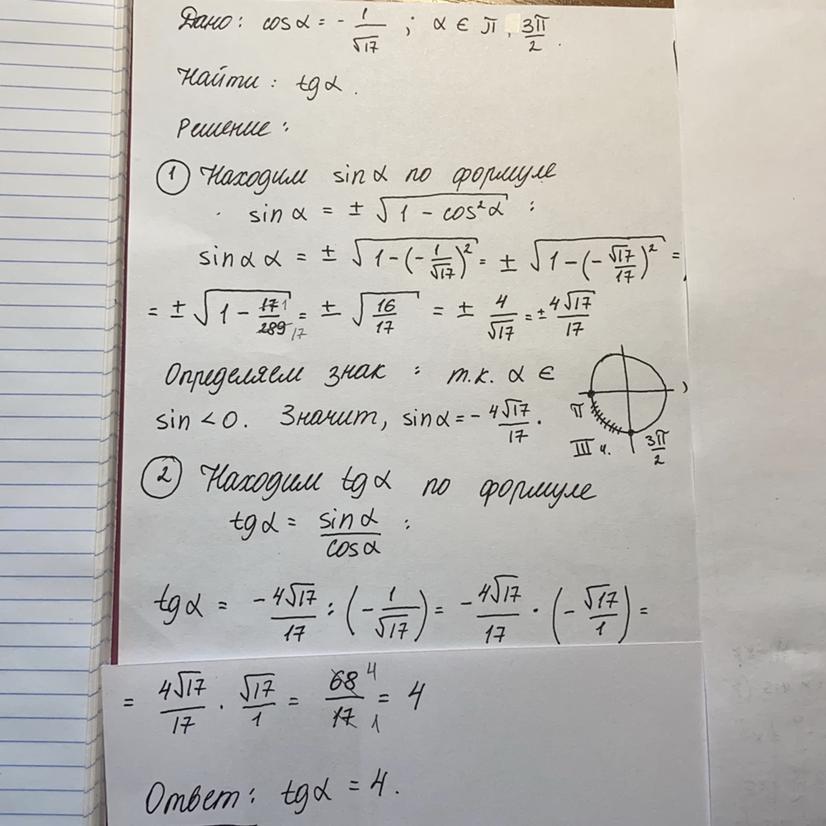 Дано: cosα = - 1/√17 ; α ∈ π, 3π/2.
Найти: tgα.
Решение:
① Находим sinα по формуле
sinα = ± √(1 - cos²α) :
sinα α = ± √(1-(-1/√17)²) = ± √(1-(-√17/17)²) =
= ± √(1 - 17/289) = 1/17 ± √(16/17) = ± 4/√17 = ± 4√17/17
Определяем знак : т.к. α ∈ ,
π
sin < 0. Значит, sinα = - 4√17/17.
III ч. 3π/2
② Находим tgα по формуле
tgα = sinα/cosα :
tgα = -4√17/17 : (-1/√17) = -4√17/17 · (-√17/1) =
= 4√17/17 · √17/1 = 68/17 4/1 = 4
Ответ: tgα = 4.